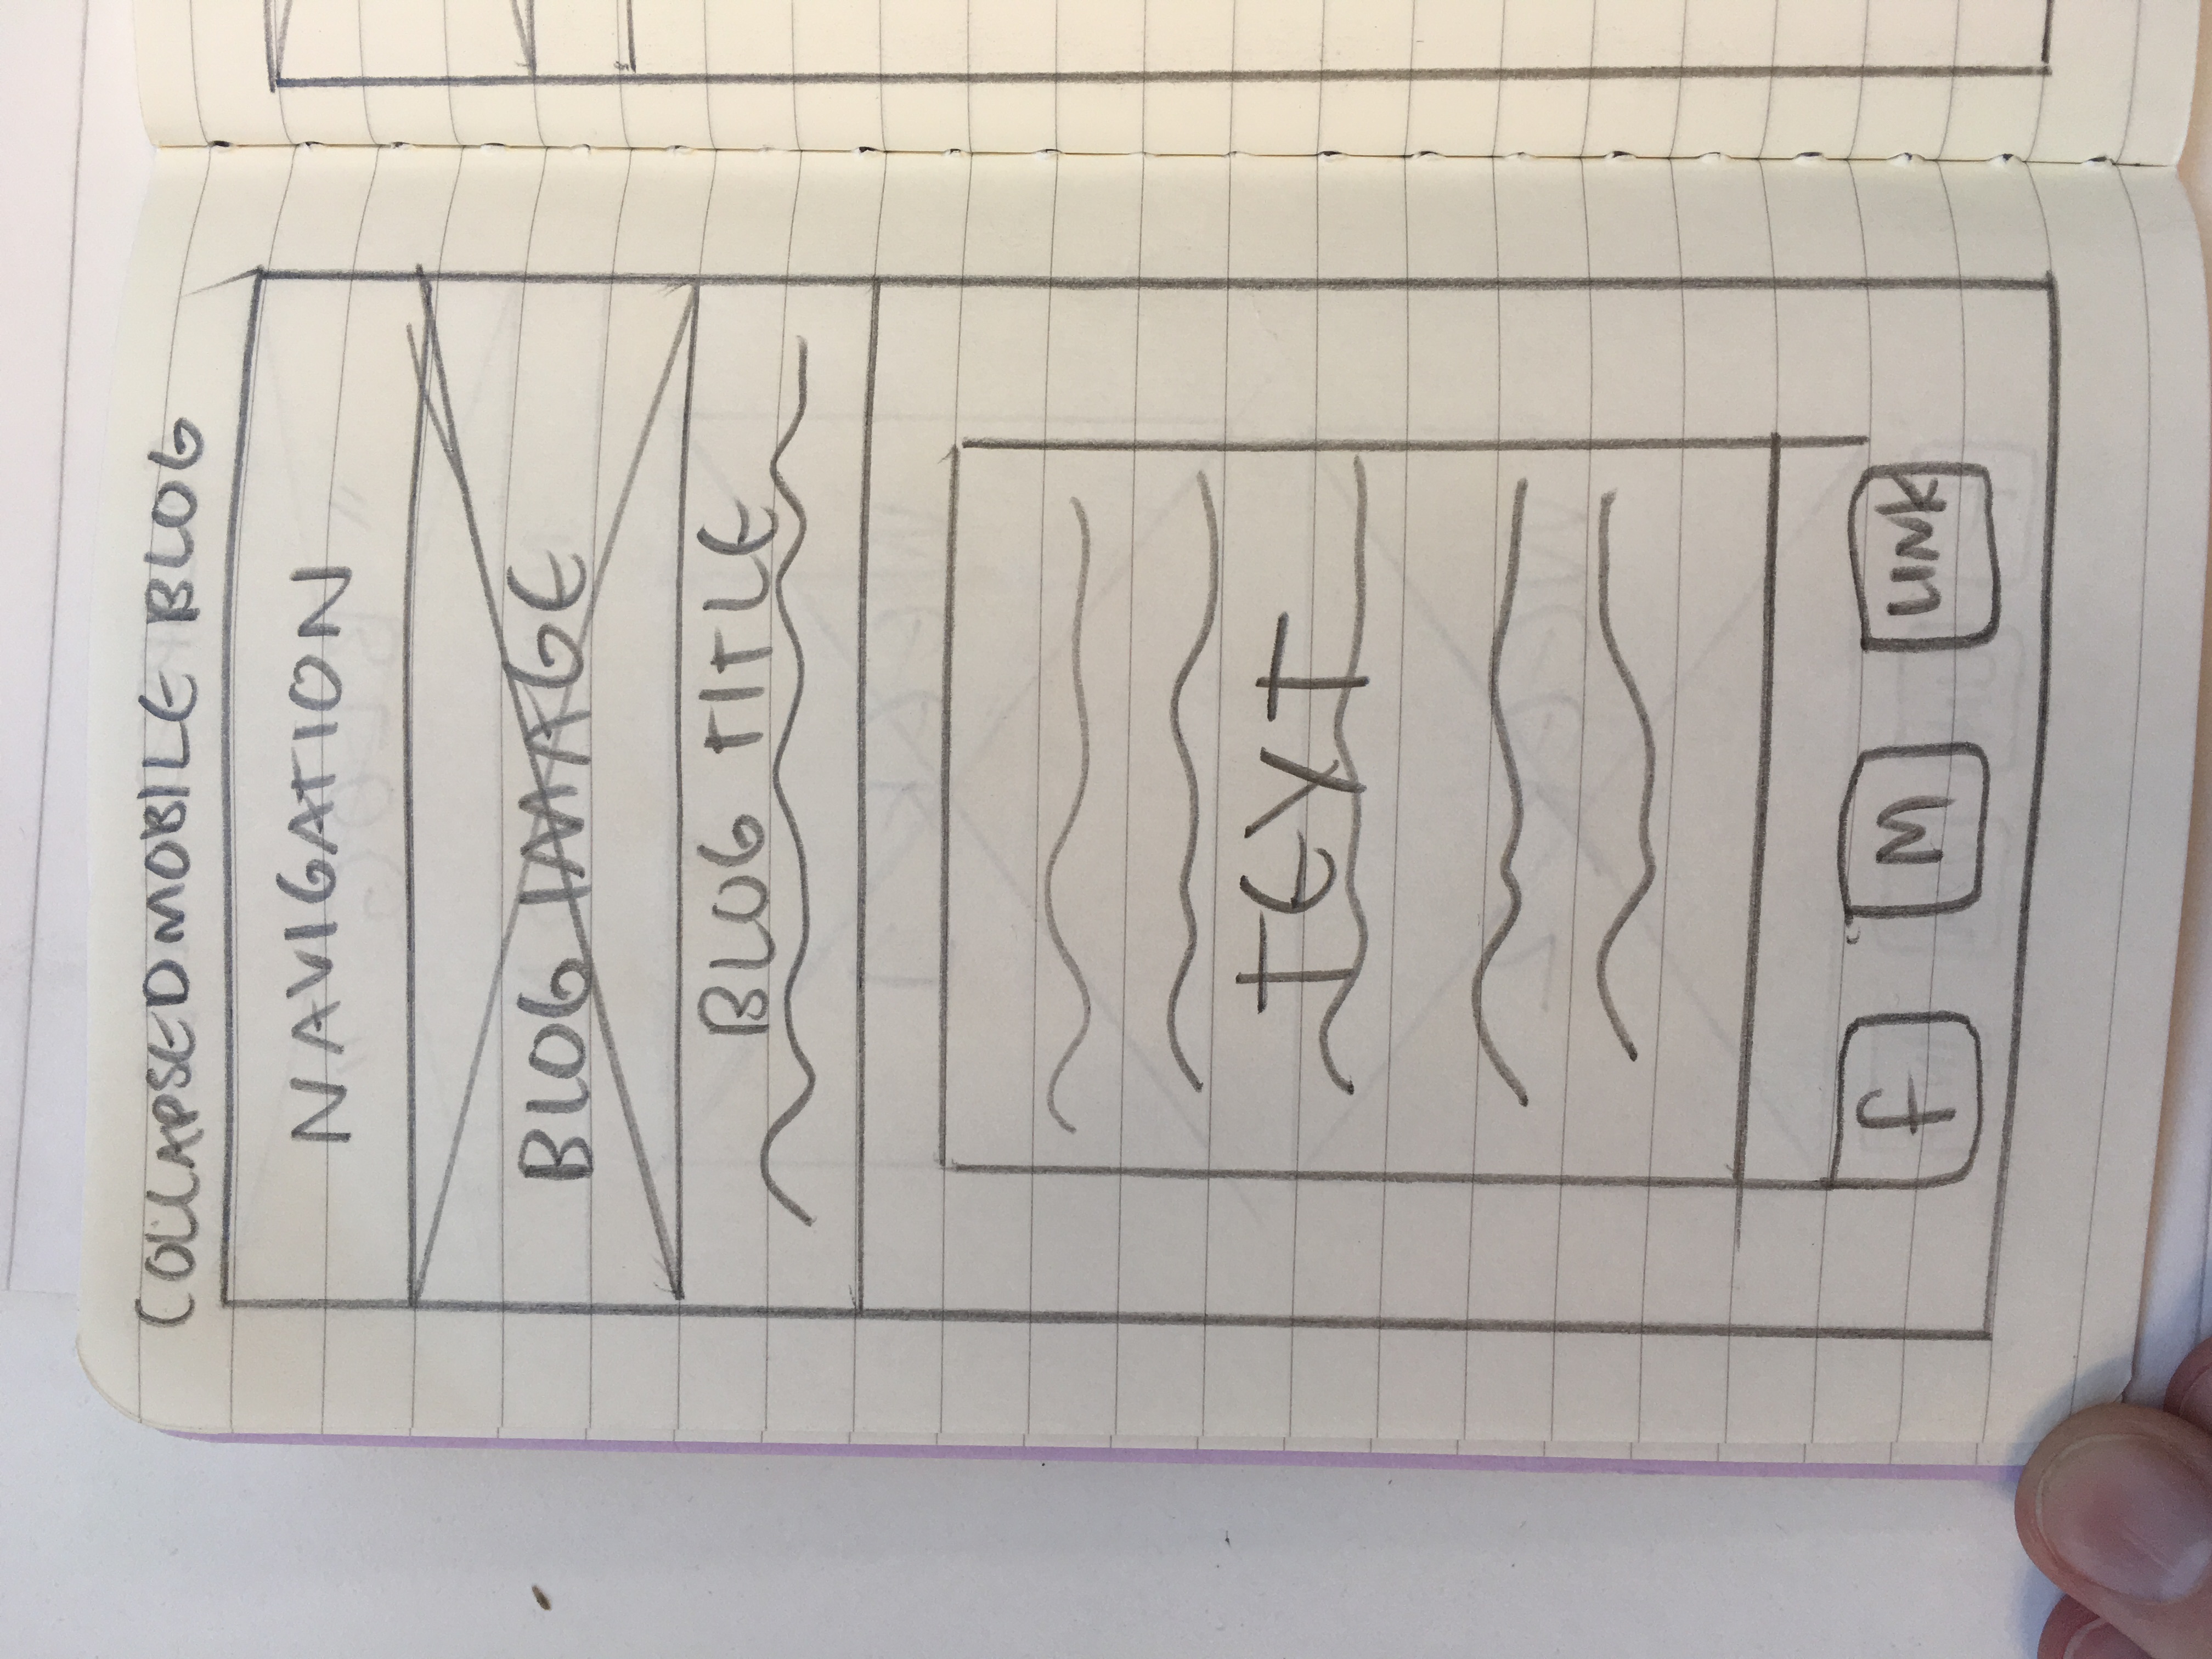 COLLAPSED MOBILE BLOG
NAVIGATION
BLOG IMAGE
BLOG TITLE
TEXT
f M LINK